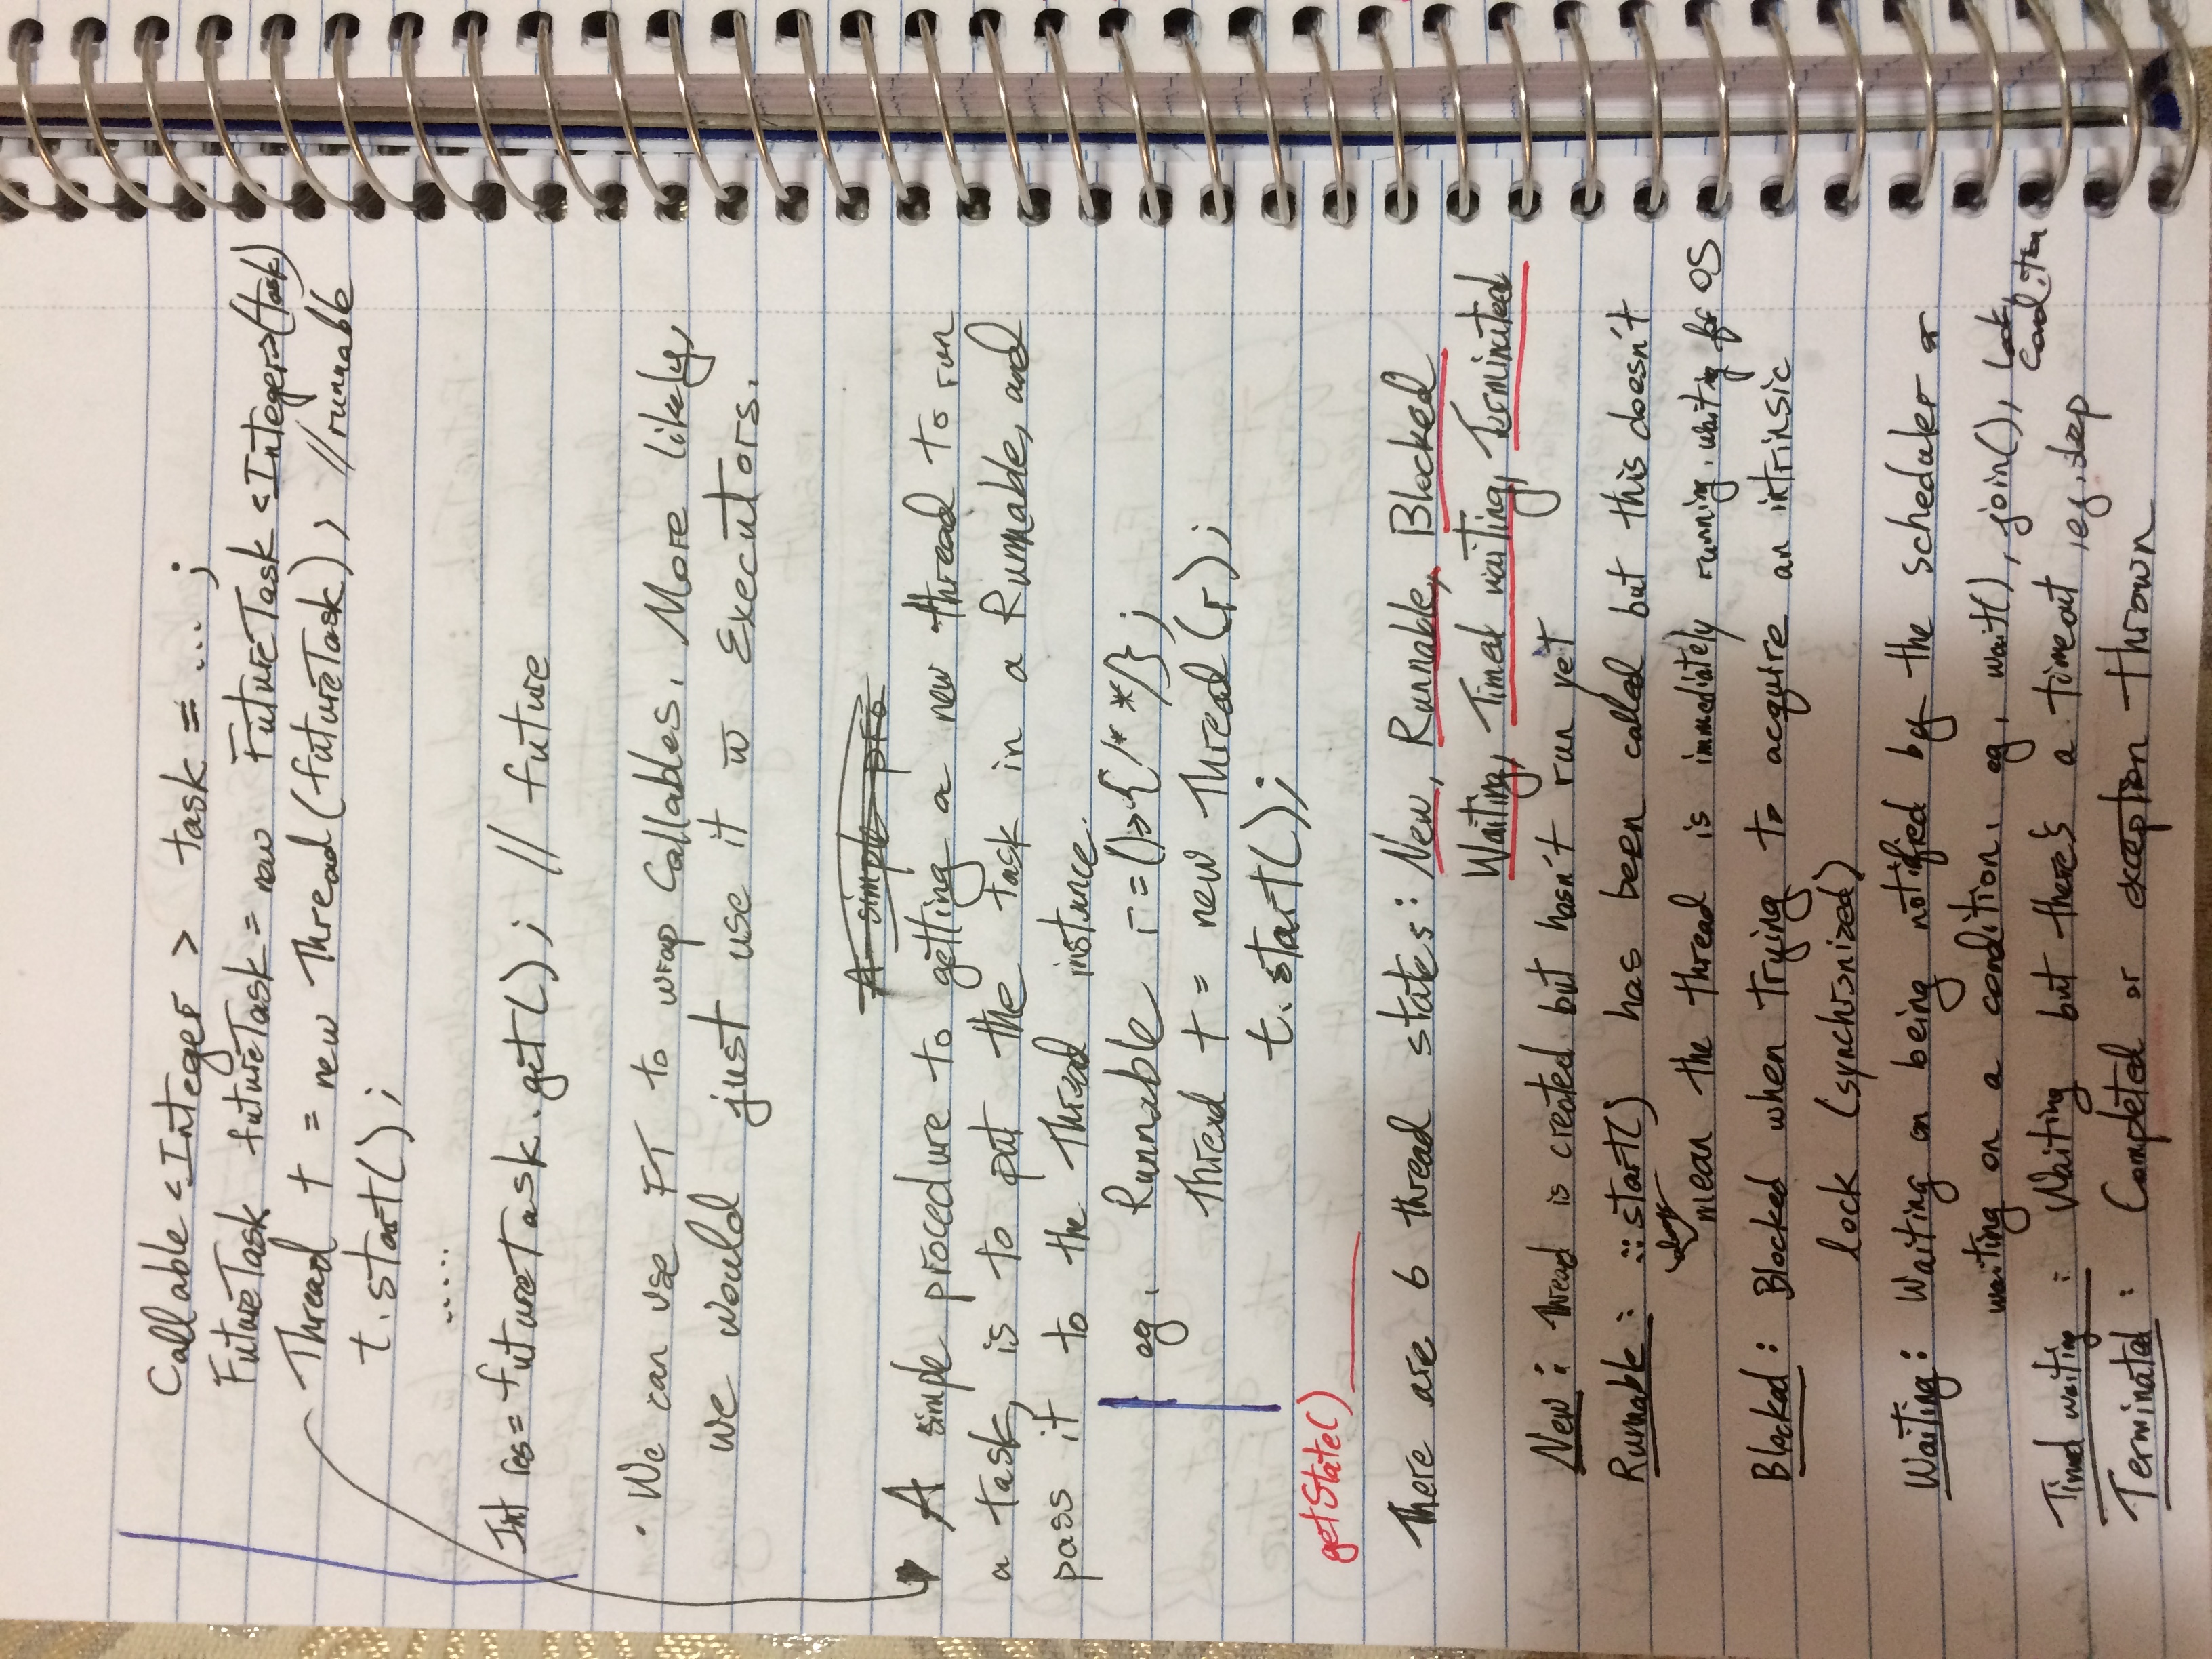 Callable <Integer> task = ... ;
FutureTask futureTask = new FutureTask <Integer>(task)
Thread t = new Thread(futureTask); //runnable
t.start();
.....
Int res = futureTask.get(); // future
• We can use FT to wrap Callables. More likely,
we would just use it w̅ Executors.
A simple pro
A simple procedure to getting a new thread to run
a task, is to put the task in a Runnable, and
pass it to the Thread instance.
eg. Runnable r = ()->{/* */};
Thread t = new Thread(r);
t.start();
getState()
There are 6 thread states: New, Runnable, Blocked
Waiting, Timed waiting, Terminated
New: thread is created but hasn't run yet
Runnable: ::start() has been called but this doesn't
always mean the thread is immediately running. waiting for OS
Blocked: Blocked when trying to acquire an intrinsic
lock (synchronized)
Waiting: Waiting on being notified by the scheduler or
waiting on a condition. eg. wait(), join(), Lock,
Condition
Timed waiting: Waiting but there's a timeout, eg. sleep
Terminated: Completed or exception thrown